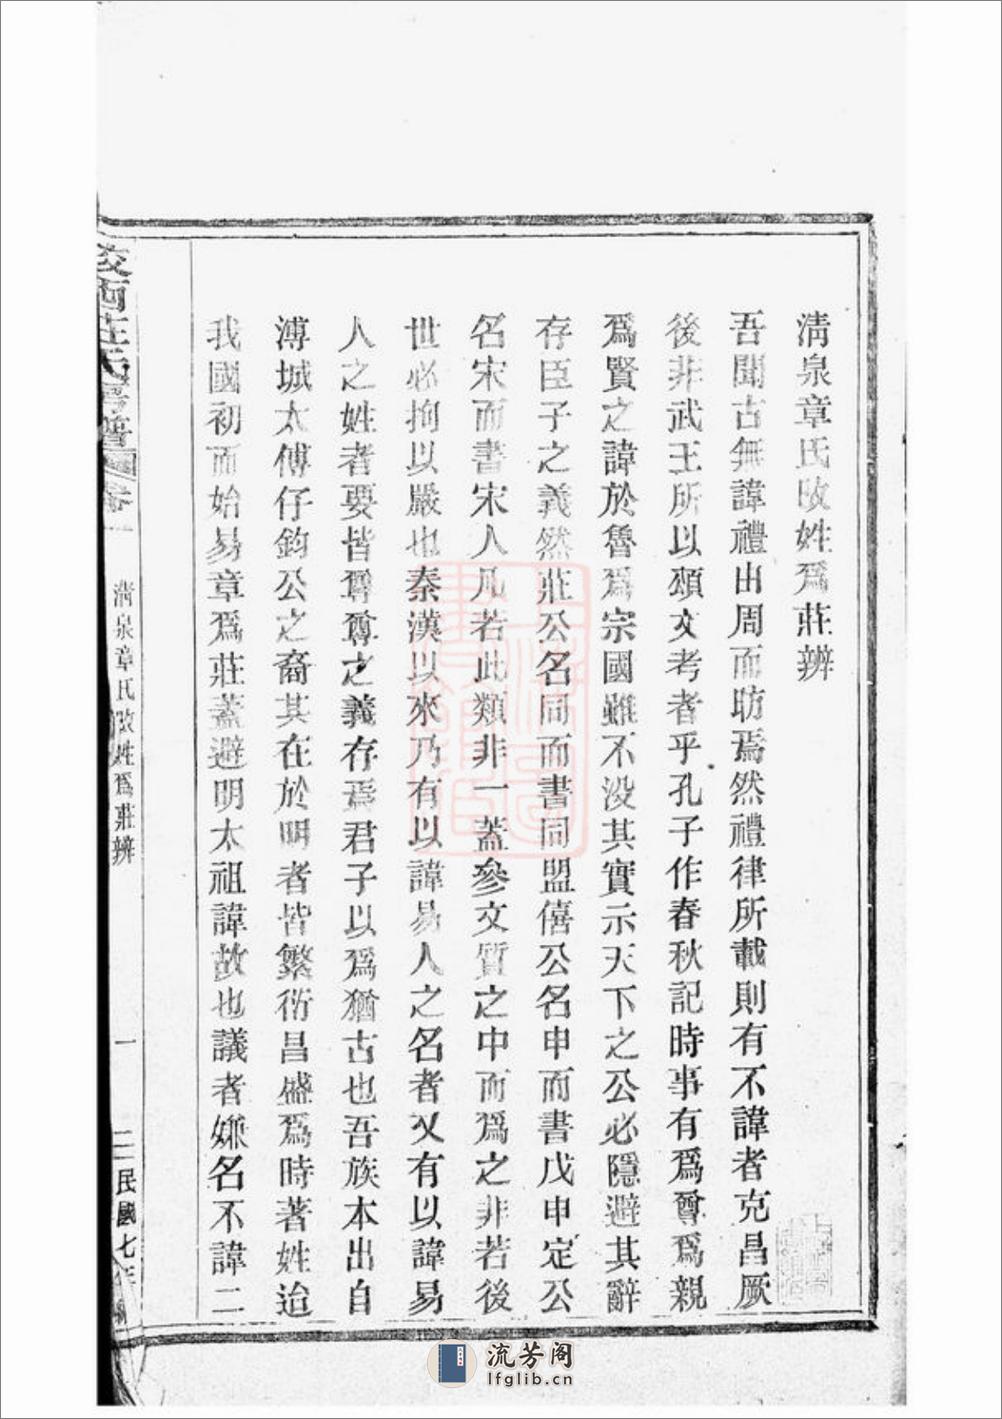 清泉章氏改姓爲莊辨
吾聞古無諱禮出周而昉焉然禮律所載則有不諱者克昌厥
後非武王所以頌文考者乎孔子作春秋記時事有爲尊爲親
爲賢之諱於魯爲宗國雖不没其實示天下之公必隱避其辭
存臣子之義然莊公名同而書同盟僖公名申而書戊申定公
名宋而書宋人凡若此類非一蓋參文質之中而爲之非若後
世必拘以嚴也秦漢以來乃有以諱易人之名者又有以諱易
人之姓者要皆尊尊之義存焉君子以爲猶古也吾族本出自
溥城太傅仔鈞公之裔其在於明者皆繁衍昌盛爲時著姓迨
我國初而始易章爲莊蓋避明太祖諱故也議者嫌名不諱二
西莊氏 譜 卷一 清泉章氏改姓爲莊辨 一 民國七年
流芳阁
lfglib.com